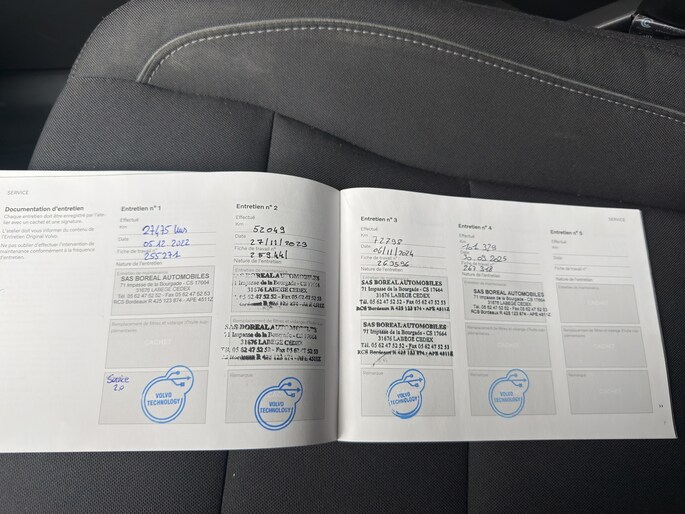 SERVICE
Documentation d'entretien
Chaque entretien doit être enregistré par l'ate-
lier avec un cachet et une signature.
L'atelier doit vous informer du contenu de
l'Entretien Original Volvo.
Ne pas oublier d'effectuer l'intervention de
maintenance conformément à la fréquence
d'entretien.
Entretien n° 1
Effectué
Km
Date
05.12.2022
Fiche de travail n°
255271
Nature de l'entretien
SAS BOREAL AUTOMOBILES
71 Impasse de la Bourgade - CS 17664
31676 LABEGE CEDEX
Tél. 05 62 47 52 52 - Fax 05 62 47 52 53
RCS Bordeaux R 428 123 874 - APE 4511Z
Service
2.0
VOLVO
TECHNOLOGY
Entretien n° 2
Effectué
Km
52049
Date
27/11/2023
Fiche de travail n°
Nature de l'entretien
SAS BOREAL AUTOMOBILES
71 Impasse de la Bourgade - CS 17664
31676 LABEGE CEDEX
05 62 47 52 52 - Fax 05 62 47 52 53
Bordeaux R 428 123 874 - APE 4511Z
SAS BOREAL AUTOMOBILES
71 Impasse de la Bourgade - CS 17664
31676 LABEGE CEDEX
05 62 47 52 52 - Fax 05 62 47 52 53
Bordeaux R 428 123 874 - APE 4511Z
Remarque
VOLVO
TECHNOLOGY
Entretien n° 3
Effectué
Km
72798
Date
06/11/2024
Fiche de travail n°
269596
Nature de l'entretien
SAS BOREAL AUTOMOBILES
71 Impasse de la Bourgade - CS 17664
31676 LABEGE CEDEX
Tél. 05 62 47 52 52 - Fax 05 62 47 52 53
RCS Bordeaux R 428 123 874 - APE 4511Z
SAS BOREAL AUTOMOBILES
71 Impasse de la Bourgade - CS 17664
31676 LABEGE CEDEX
Tél. 05 62 47 52 52 - Fax 05 62 47 52 53
RCS Bordeaux R 428 123 874 - APE 4511Z
Remarque
VOLVO
TECHNOLOGY
Entretien n° 4
Effectué
Km
Date
Fiche de travail n°
Nature de l'entretien
SAS BOREAL AUTOMOBILES
71 Impasse de la Bourgade - CS 17664
31676 LABEGE CEDEX
Tél. 05 62 47 52 52 - Fax 05 62 47 52 53
RCS Bordeaux R 428 123 874 - APE 4511Z
Remarque
VOLVO
TECHNOLOGY
SERVICE
Entretien n° 5
Effectué
Km
Date
Fiche de travail n°
Nature de l'entretien
Remarque